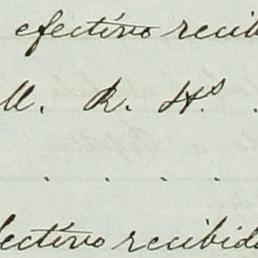 efectivo recib
M. R. Hs.
. . . .
fectivo recibido